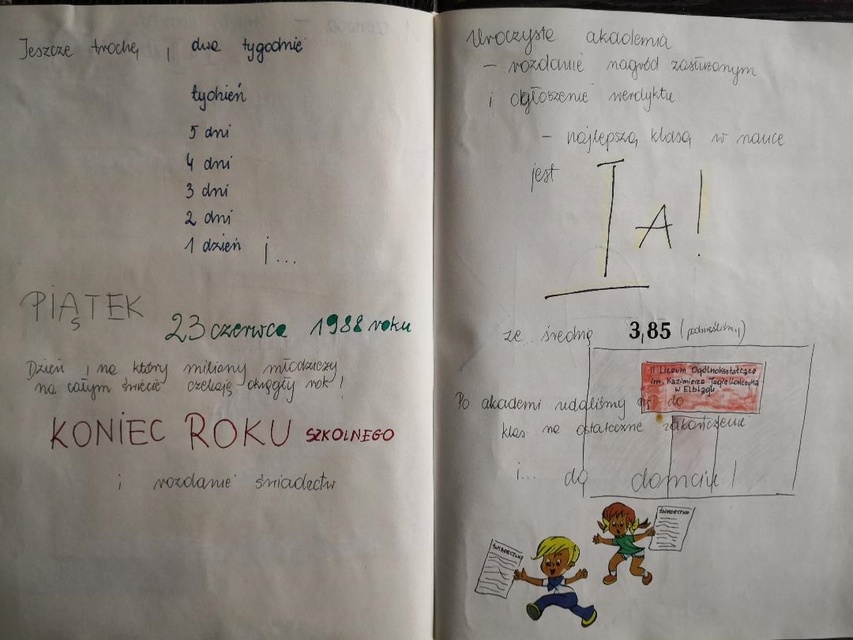 Jeszcze trochę, dwa tygodnie
tydzień
5 dni
4 dni
3 dni
2 dni
1 dzień i...
PIĄTEK
23 czerwca 1988 roku
Dzień, na który miliony młodzieży
na całym świecie czekają okrągły rok!
KONIEC ROKU SZKOLNEGO
i rozdanie świadectw
Uroczysta akademia
- rozdanie nagród zasłużonym
i ogłoszenie werdyktu
- najlepszą klasą w nauce
jest
I A!
ze średnią 3,85
II Liceum Ogólnokształcące
im. Kazimierza Jagiellończyka
w Elblągu
Po akademi udaliśmy się do
klas na ostateczne zakończenie
i... do domciu!
ŚWIADECTWO
ŚWIADECTWO